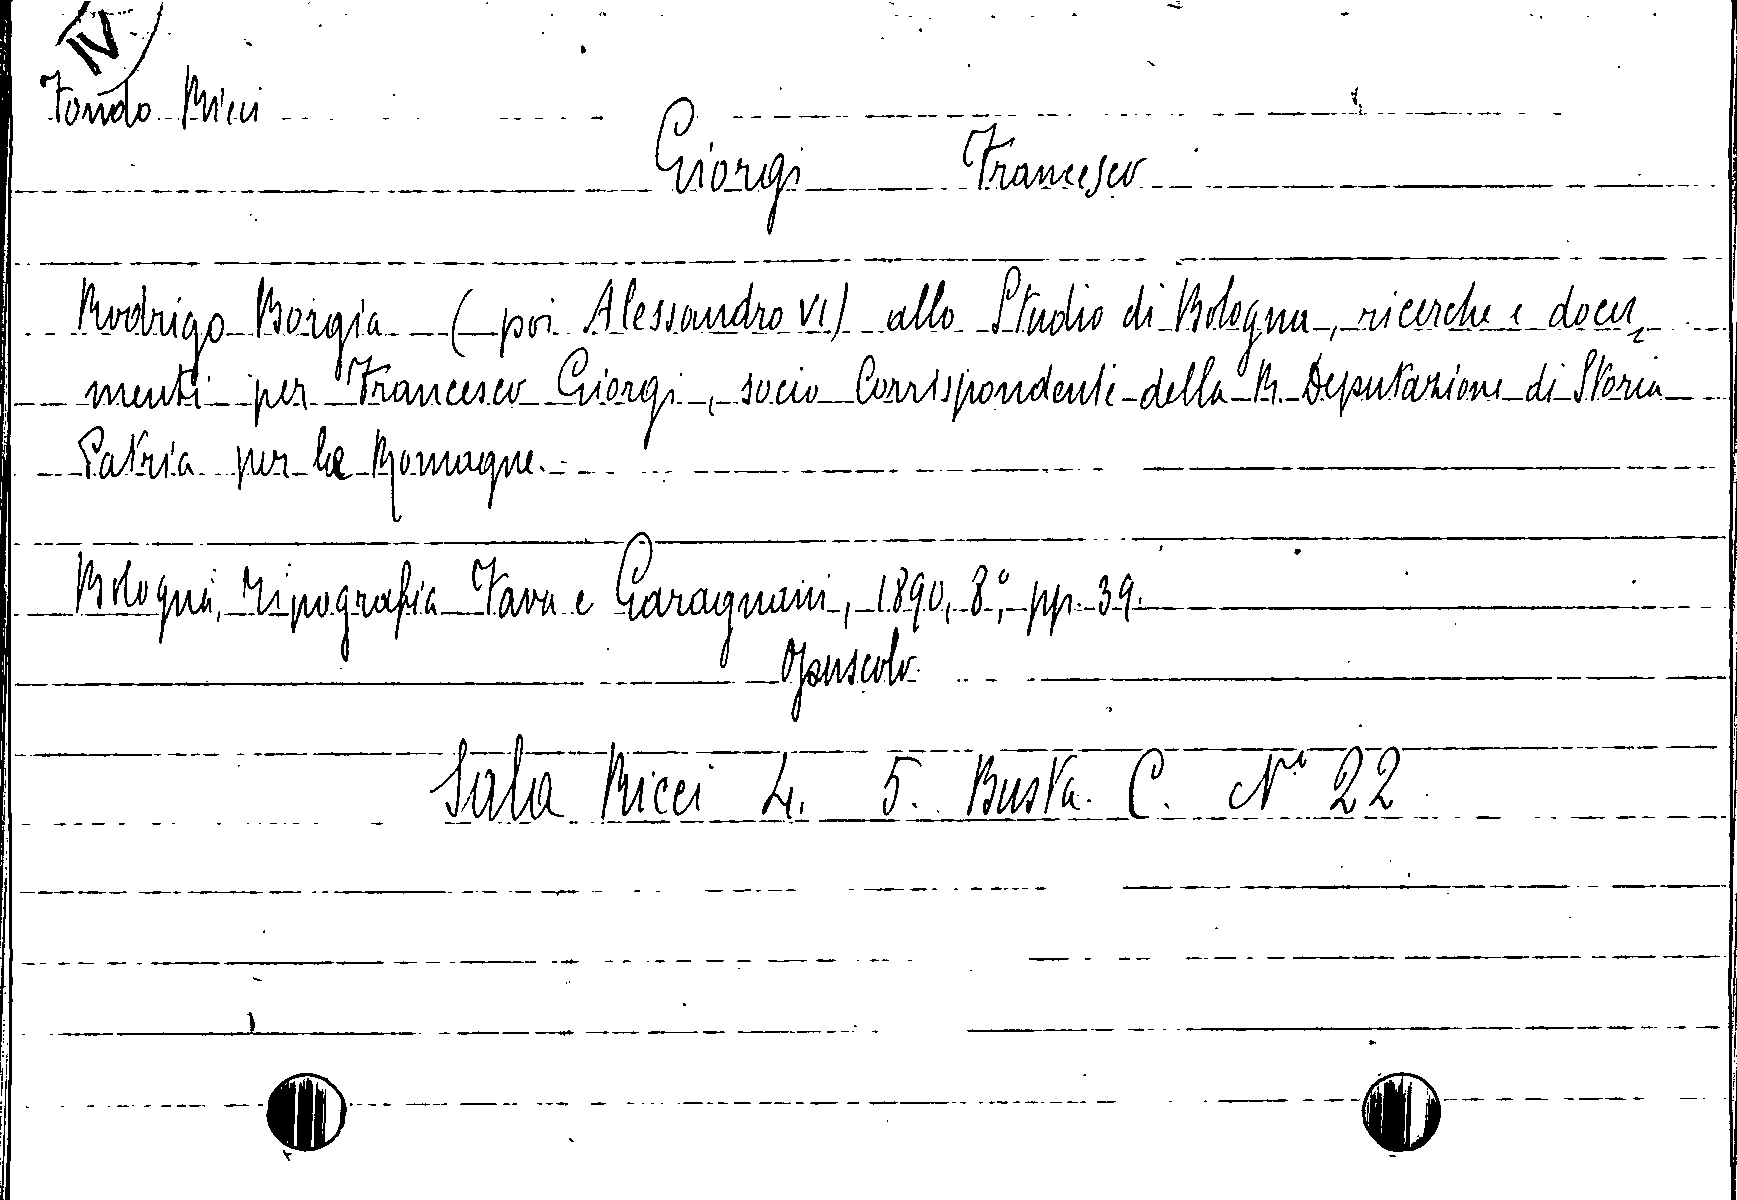 IV
Fondo Ricci
Giorgi Francesco
Rodrigo Borgia (poi Alessandro VI) allo Studio di Bologna, ricerche e docu=
menti per Francesco Giorgi, socio Corrispondente della R. Deputazione di Storia
Patria per le Romagne.
Bologna, Tipografia Fava e Garagnani, 1890, 8°, pp. 39.
Opuscolo
Sala Ricci 4. 5. Busta. C. N° 22